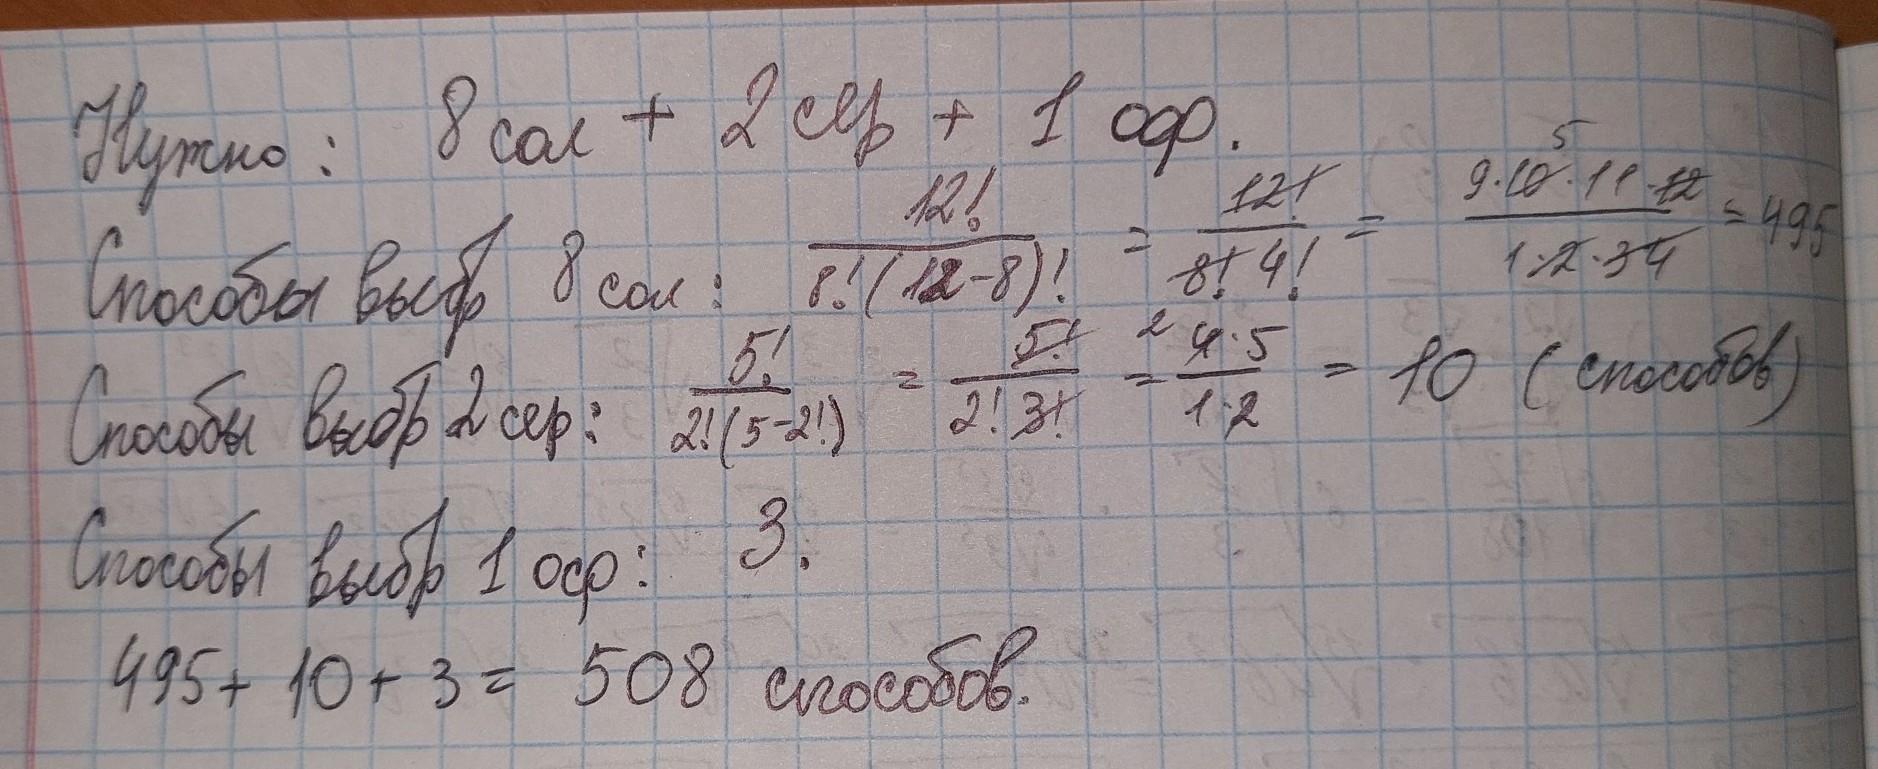 Нужно: 8 сол + 2 сер + 1 оф.
Способы выбр 8 сол: 12!/8!(12-8)! = 12!/8! 4! = 9·10·11·12/1·2·3·4 = 495
Способы выбр 2 сер: 5!/2!(5-2!) = 5!/2! 3! = 4·5/1·2 = 10 (способов)
Способы выбр 1 оф: 3.
495 + 10 + 3 = 508 способов.